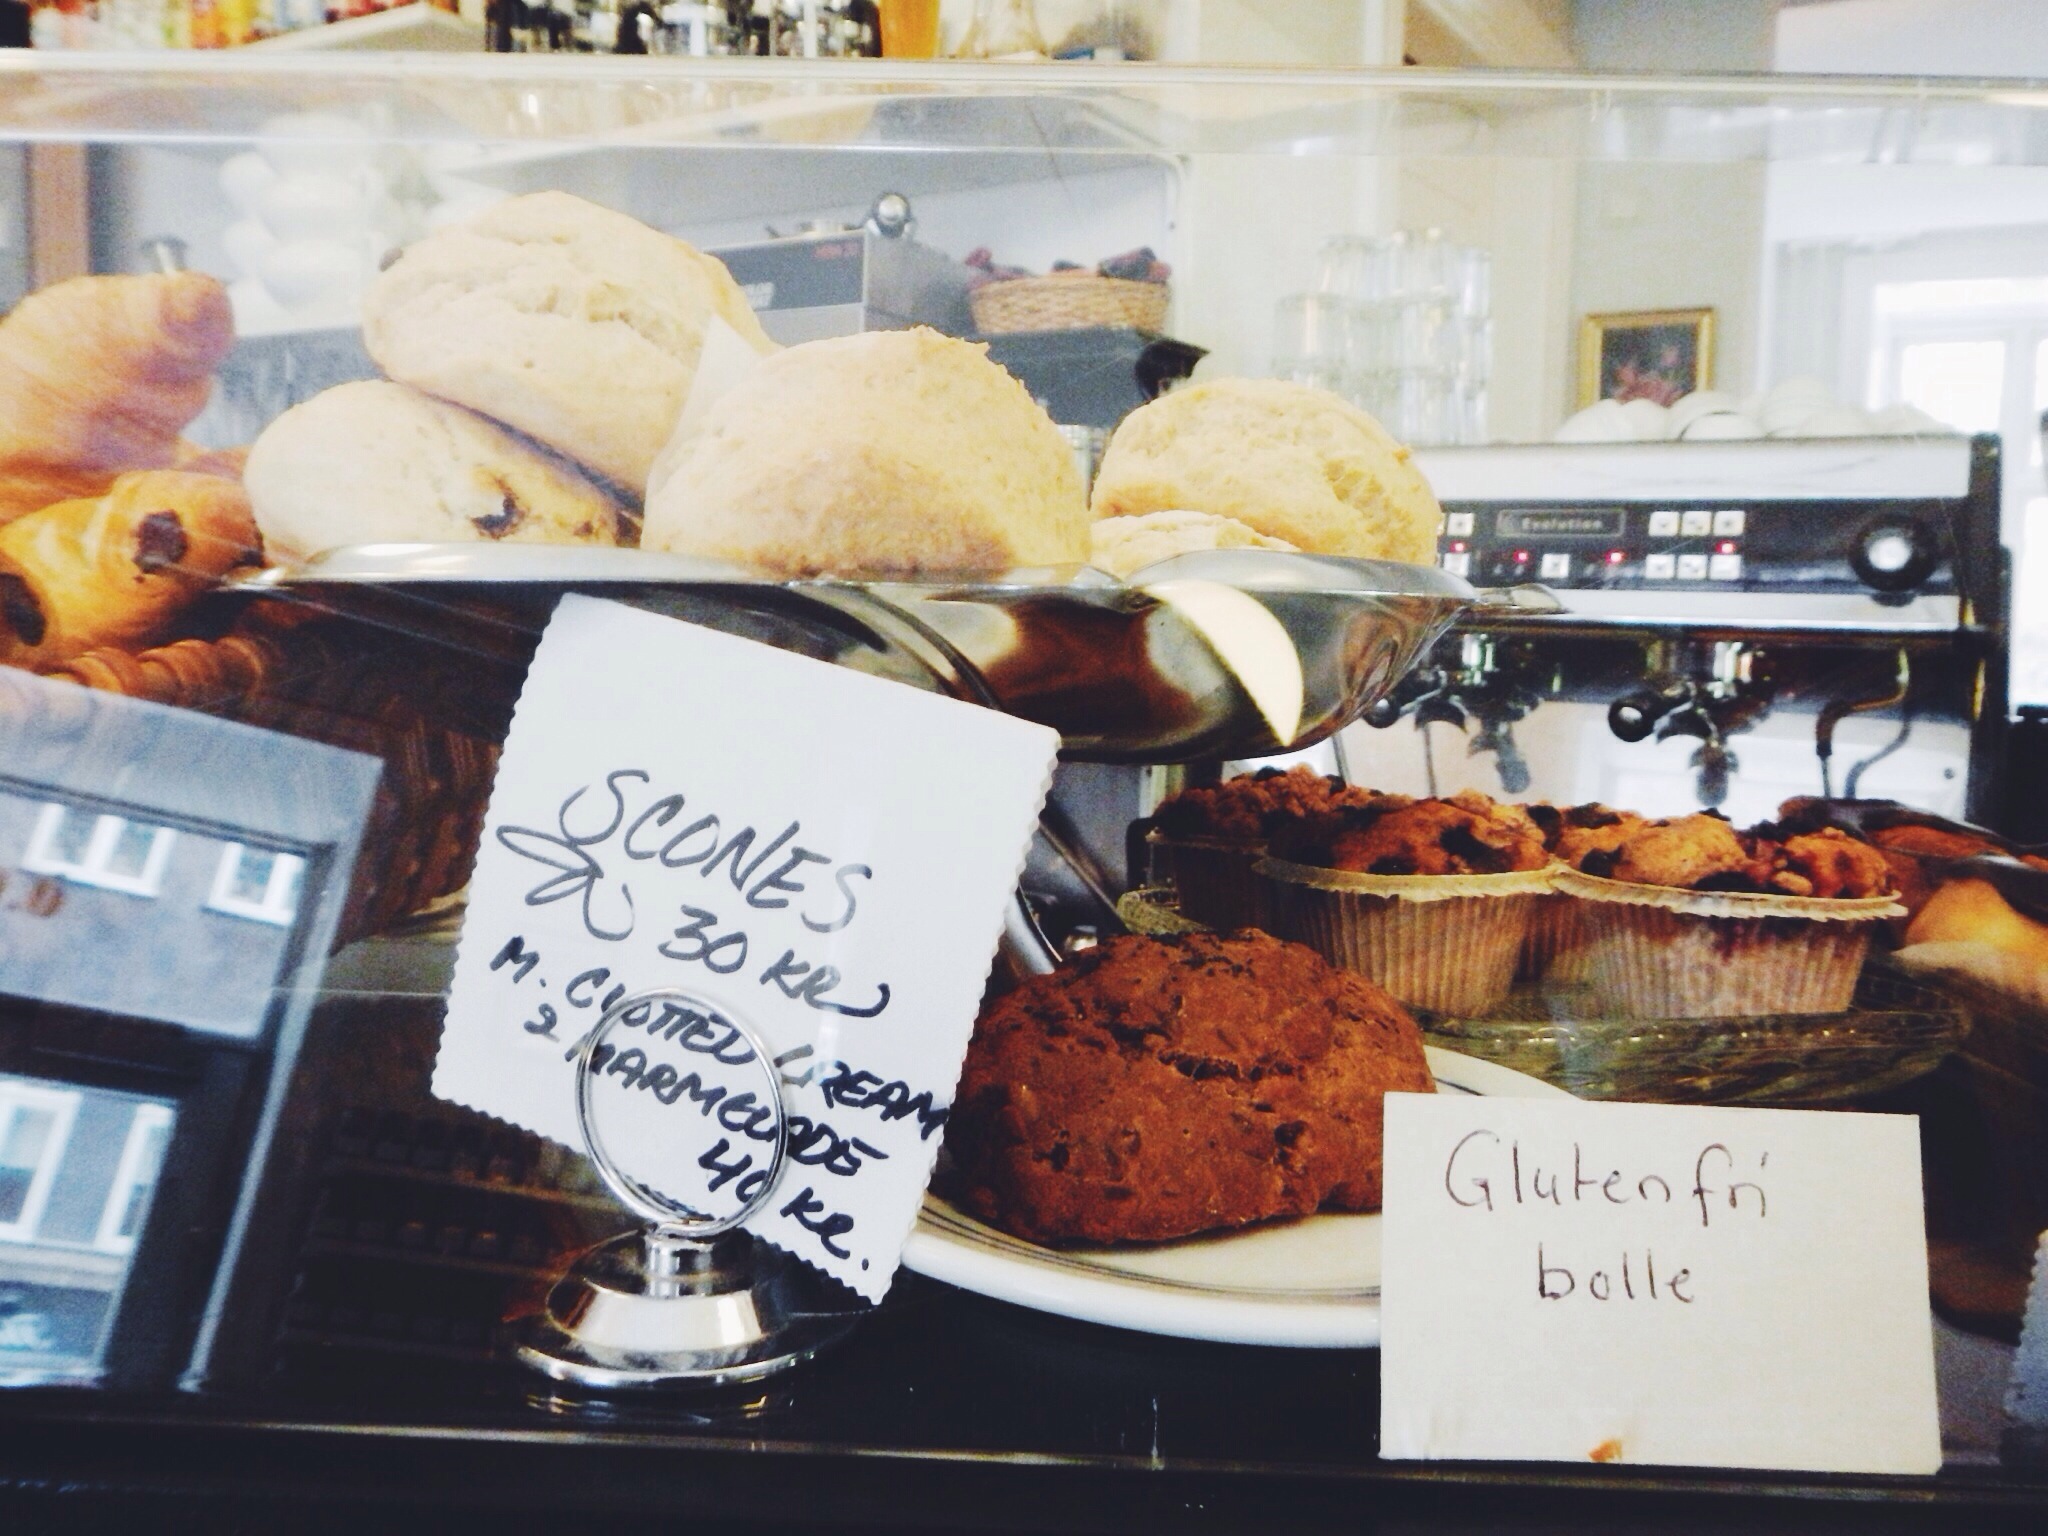 SCONES
30 KR
M. CLOTTED CREAM
& MARMELADE
40 KR.
Glutenfri
bolle
Evolution